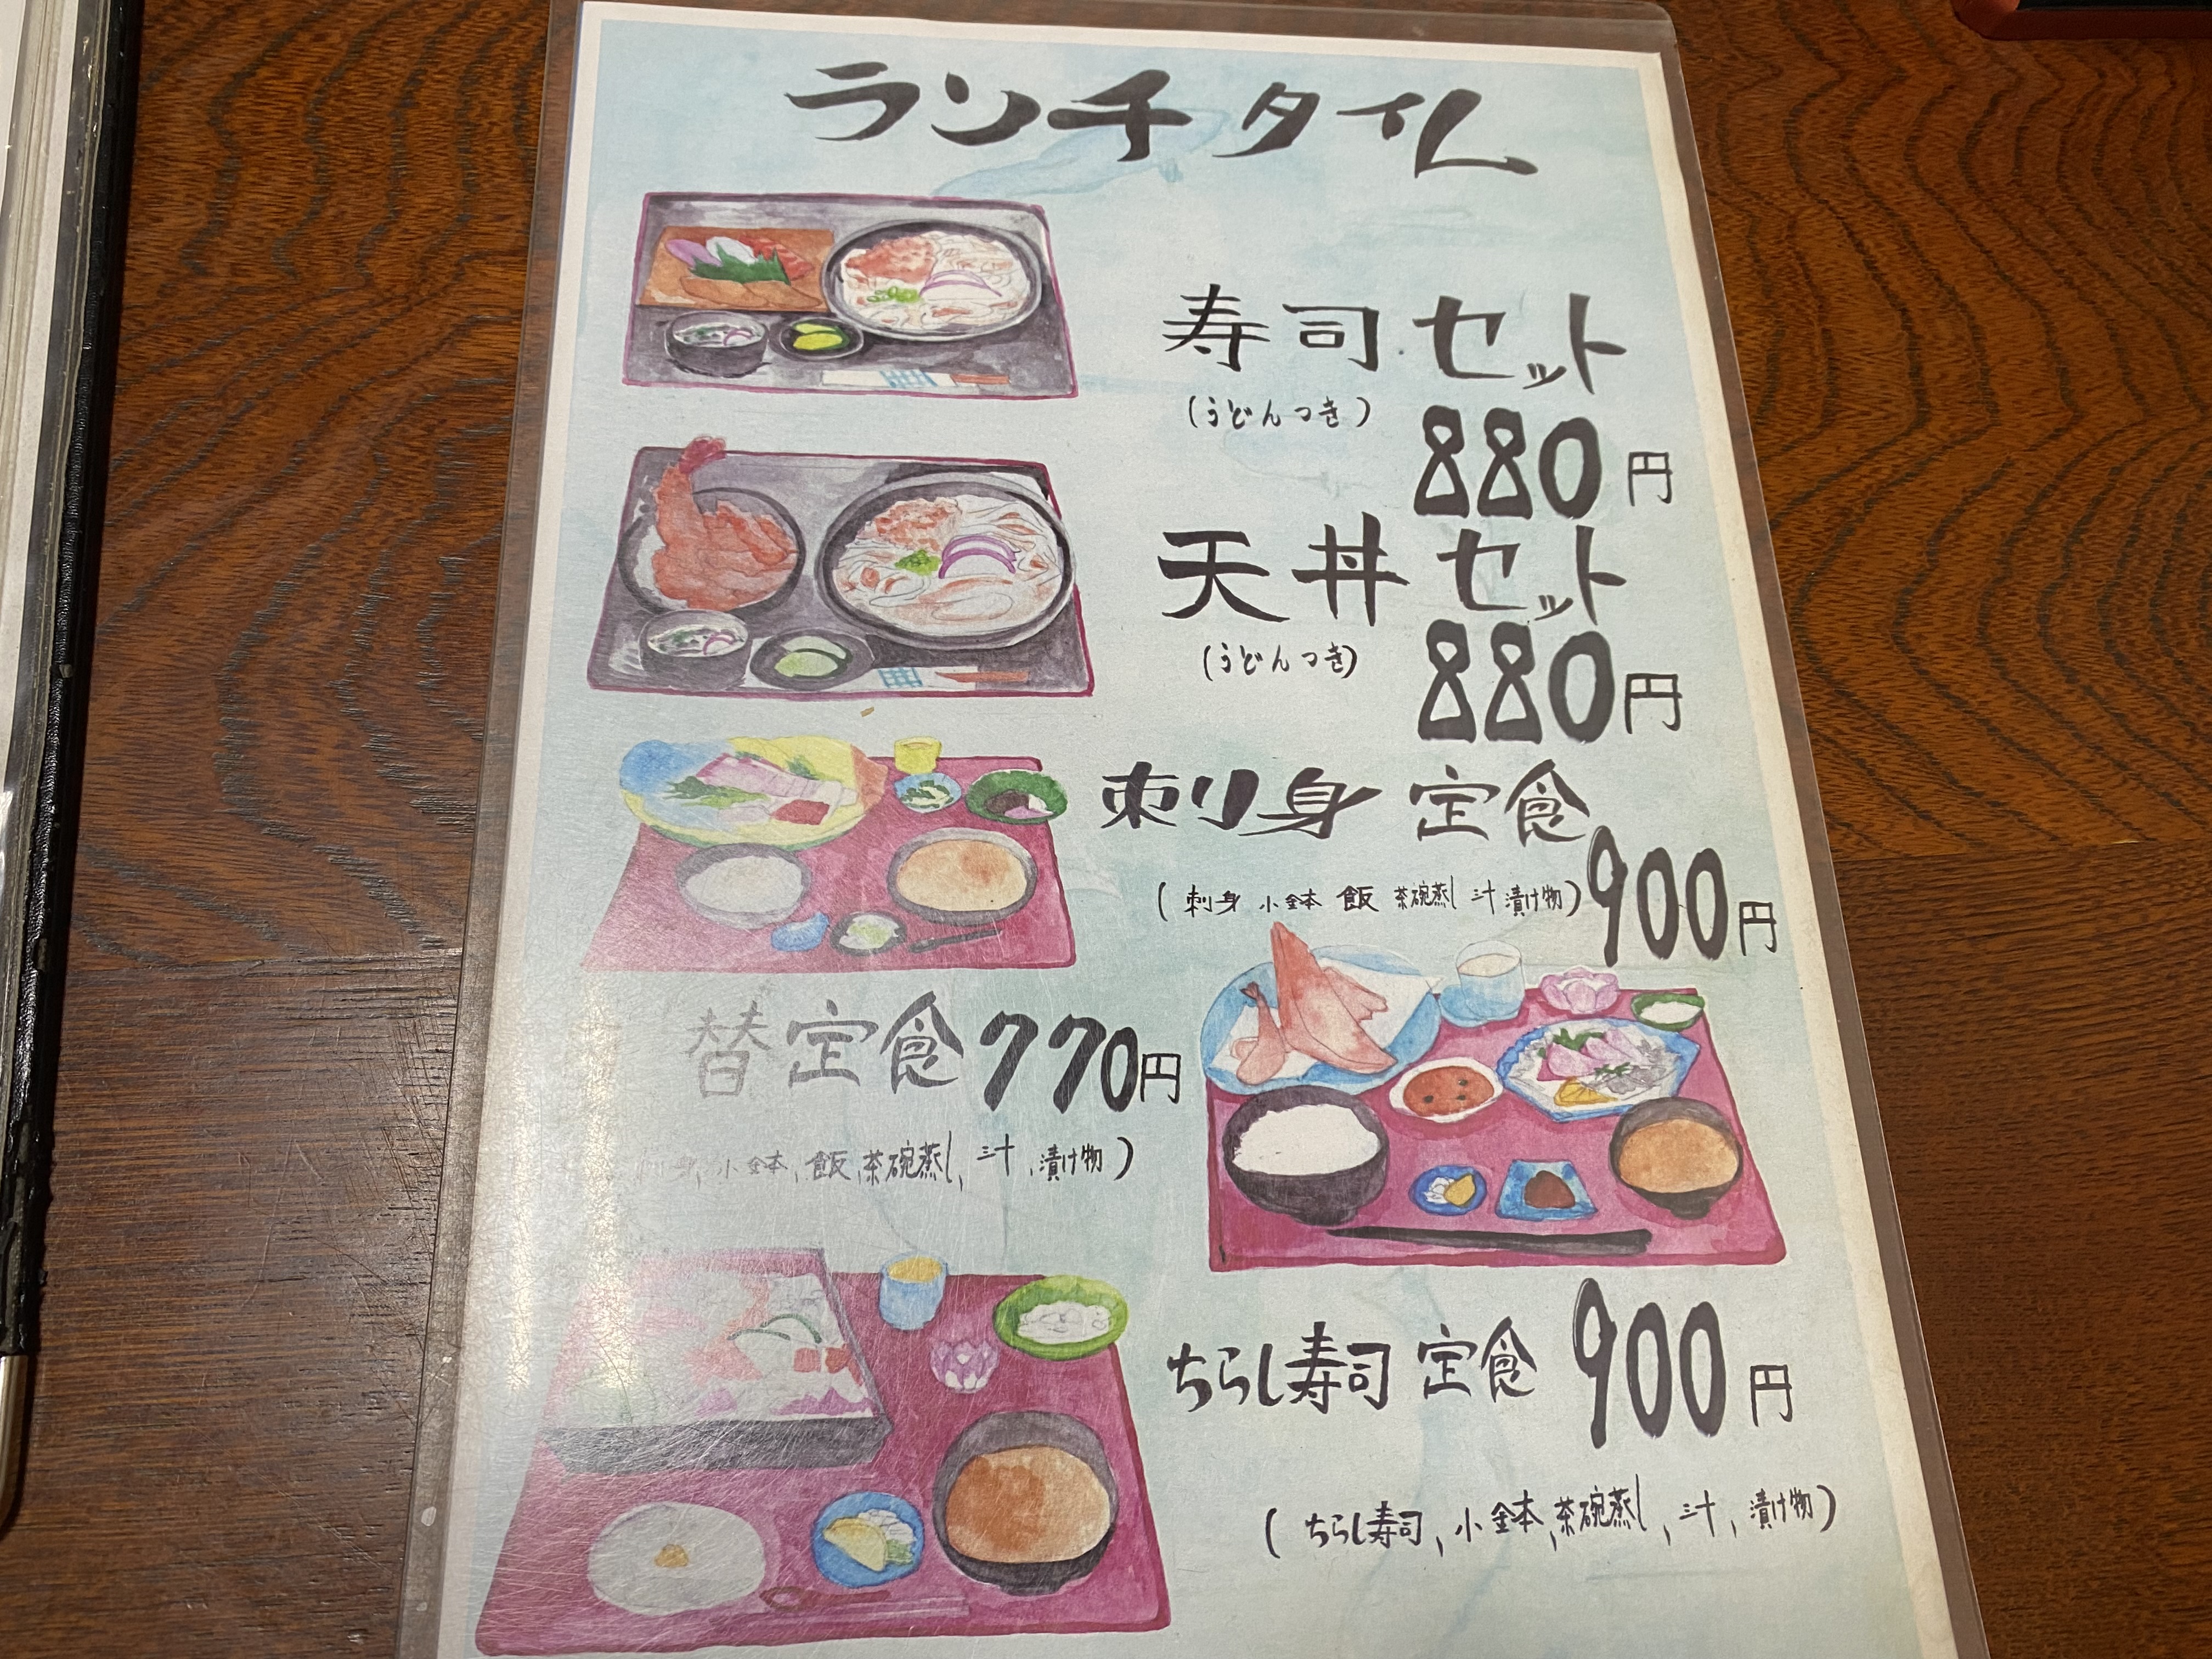 ランチタイム
寿司セット
(うどんつき)
880円
天丼セット
(うどんつき)
880円
刺身定食
(刺身 小鉢 飯 茶碗蒸し 汁 漬け物)
900円
替定食770円
身, 小鉢, 飯, 茶碗蒸し, 汁, 漬け物)
ちらし寿司定食 900円
(ちらし寿司, 小鉢, 茶碗蒸し, 汁, 漬け物)